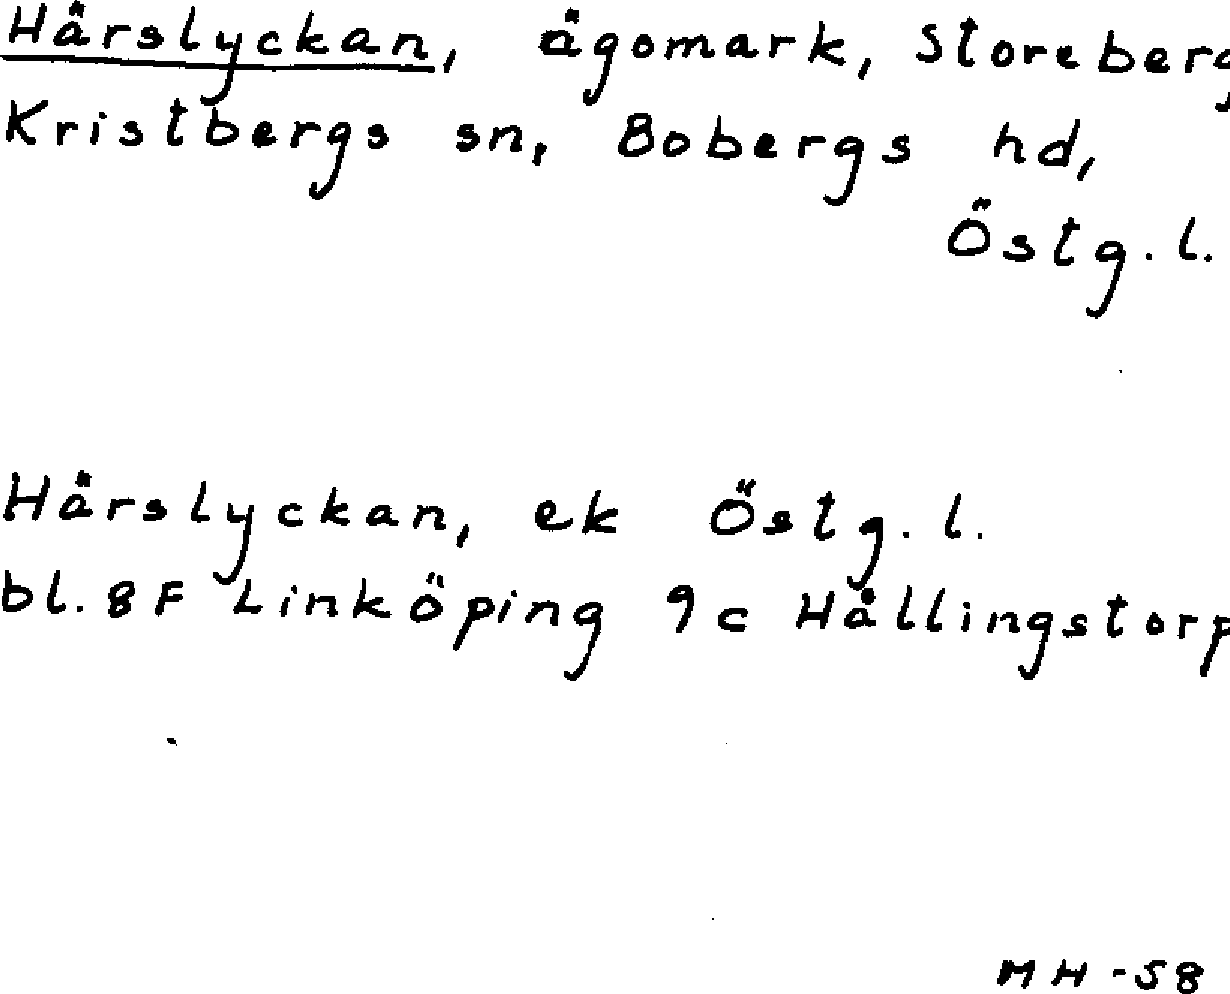 Hårslyckan, ägomark, Storeberg
Kristbergs sn, Bobergs hd,
Östg. l.
Hårslyckan, ek Östg. l.
bl. 8F Linköping 9c Hällingstorp
MH-58